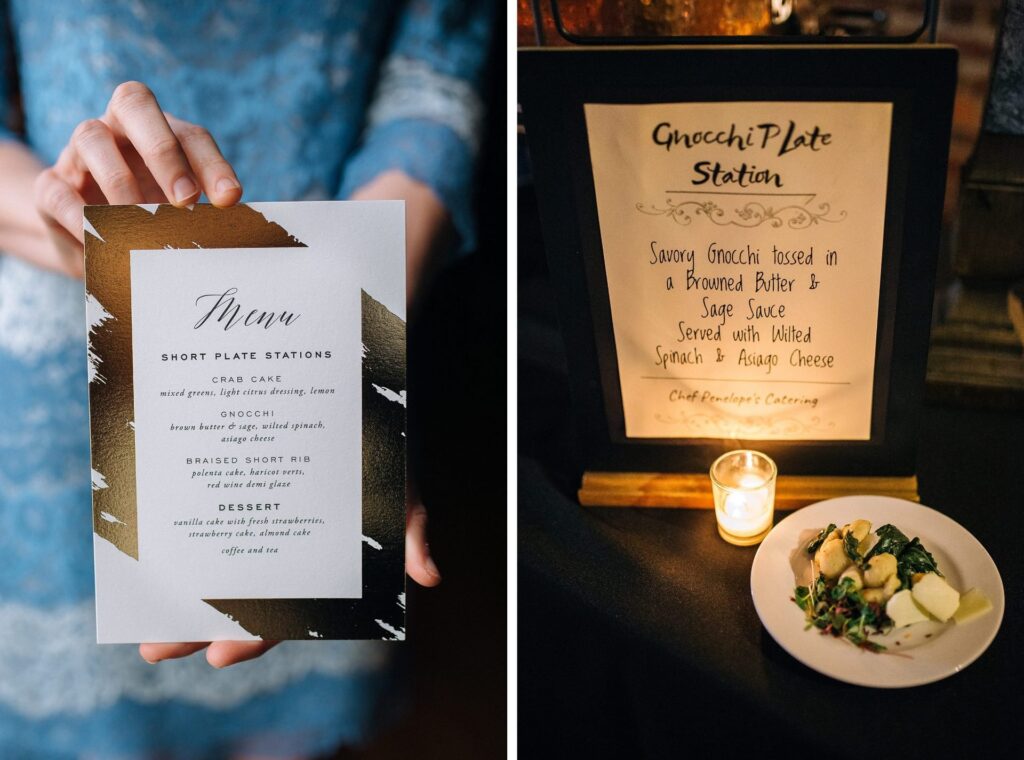 Menu
SHORT PLATE STATIONS
CRAB CAKE
mixed greens, light citrus dressing, lemon
GNOCCHI
brown butter & sage, wilted spinach,
asiago cheese
BRAISED SHORT RIB
polenta cake, haricot verts,
red wine demi glaze
DESSERT
vanilla cake with fresh strawberries,
strawberry cake, almond cake
coffee and tea
Gnocchi Plate
Station
Savory Gnocchi tossed in
a Browned Butter &
Sage Sauce
Served with Wilted
Spinach & Asiago Cheese
Chef Penelope's Catering